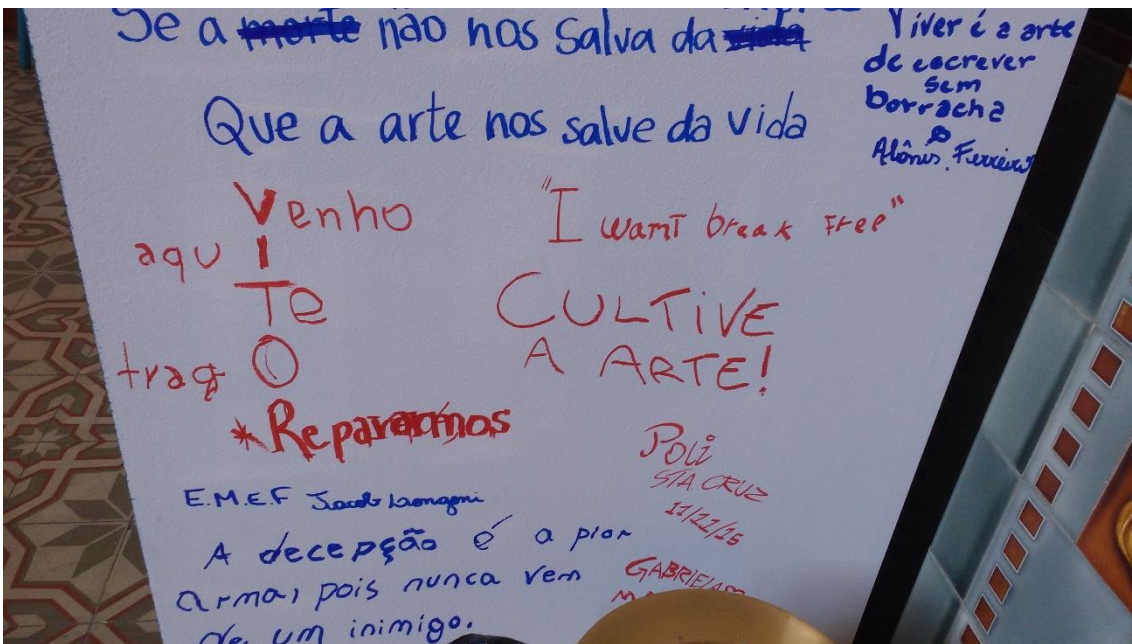 Se a morte não nos salva da vida
Que a arte nos salve da vida
Viver é a arte
de escrever
sem
borracha
Venho
aqu I
Te
trag O
* Repararmos
"I want break free"
CULTIVE
A ARTE!
Poli
STA. CRUZ
E.M.E.F Jacob
A decepção é a pior
arma, pois nunca vem
de um inimigo.